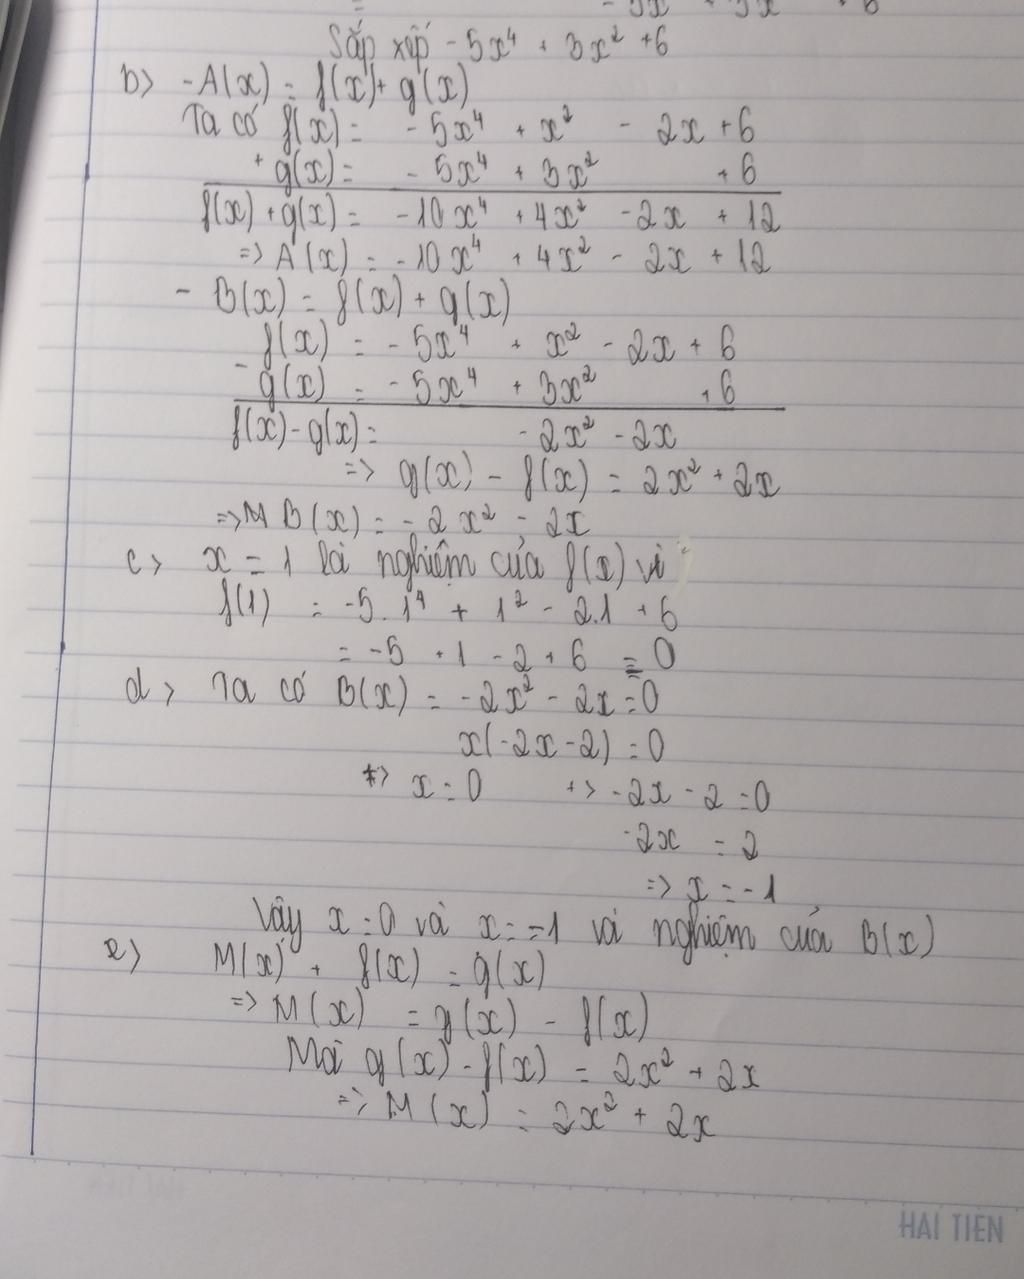 Sắp xếp -5x⁴ + 3x² +6
b> -A(x) = f(x)+ g(x)
Ta có f(x) = -5x⁴ + x² - 2x +6
+ g(x) = -5x⁴ + 3x² +6
f(x) +g(x) = -10x⁴ +4x² -2x + 12
=> A(x) = -10x⁴ + 4x² - 2x + 12
- B(x) = f(x) + g(x)
- f(x) = -5x⁴ + x² - 2x + 6
g(x) = -5x⁴ + 3x² +6
f(x) - g(x) = -2x² -2x
=> g(x) - f(x) = 2x² + 2x
=> M B(x) = -2x² - 2x
c> x = 1 là nghiệm của f(x) vì
f(1) = -5.1⁴ + 1² - 2.1 + 6
= -5 +1 - 2 + 6 = 0
d> Ta có B(x) = -2x² - 2x = 0
x(-2x-2) = 0
+> x = 0 +> -2x - 2 = 0
-2x = 2
=> x = -1
Vậy x = 0 và x = -1 là nghiệm của B(x)
e) M(x) + f(x) = g(x)
=> M(x) = g(x) - f(x)
Mà g(x) - f(x) = 2x² + 2x
=> M(x) = 2x² + 2x
HẢI TIẾN